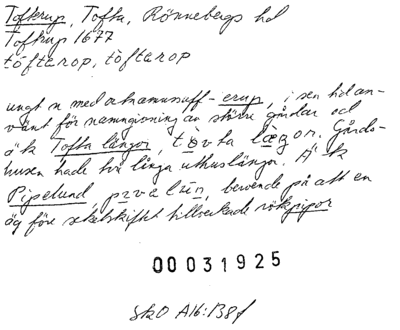 Toftrup, Tofta, Rönnebergs hd
Toftrup 1677
töftarop, töftarop
ungt n med ortnamnsuff -erup, i sen tid an-
vänt för namngivning av större gårdar och
ä k Tofta längor, längor. Gårds-
husen hade två långa uthuslängor. Ä k
Pipelund, beroende på att en
äg före skelskiftet tillverkade rökpipor
00031925
SkO A16:138f